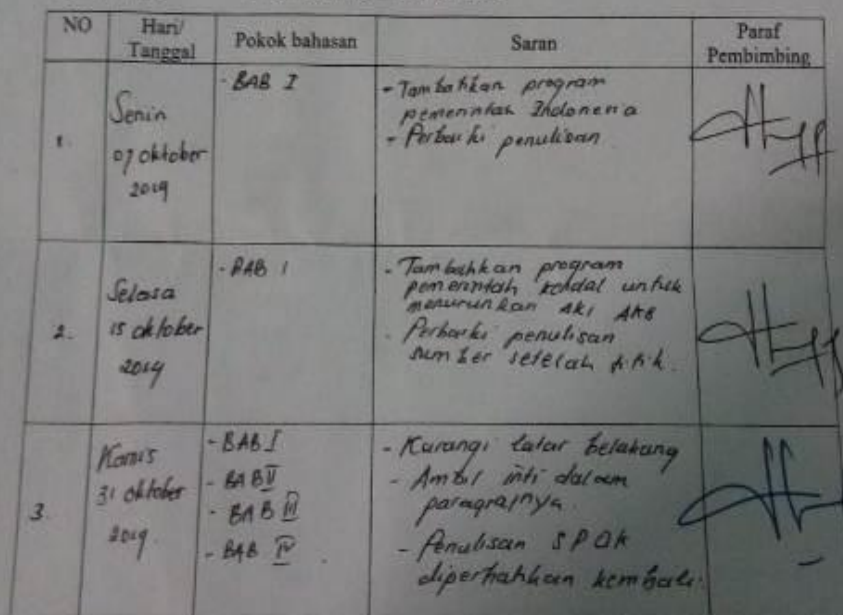 NO Hari/ Tanggal Pokok bahasan Saran Paraf Pembimbing
1. Senin 07 Oktober 2019
- BAB I
- Tambahkan program
pemerintah Indonesia
- Perbaiki penulisan
2. Selasa 15 oktober 2019
- BAB 1
- Tambahkan program
pemerintah kendal untuk
menurunkan AKI AKB
- Perbaiki penulisan
sumber setelah titik.
3. Kamis 31 oktober 2019.
- BAB I
- BAB II
- BAB III
- BAB IV
- Kurangi latar belakang
- Ambil inti dalam
paragrafnya.
- Penulisan SPOK
diperhatikan kembali.